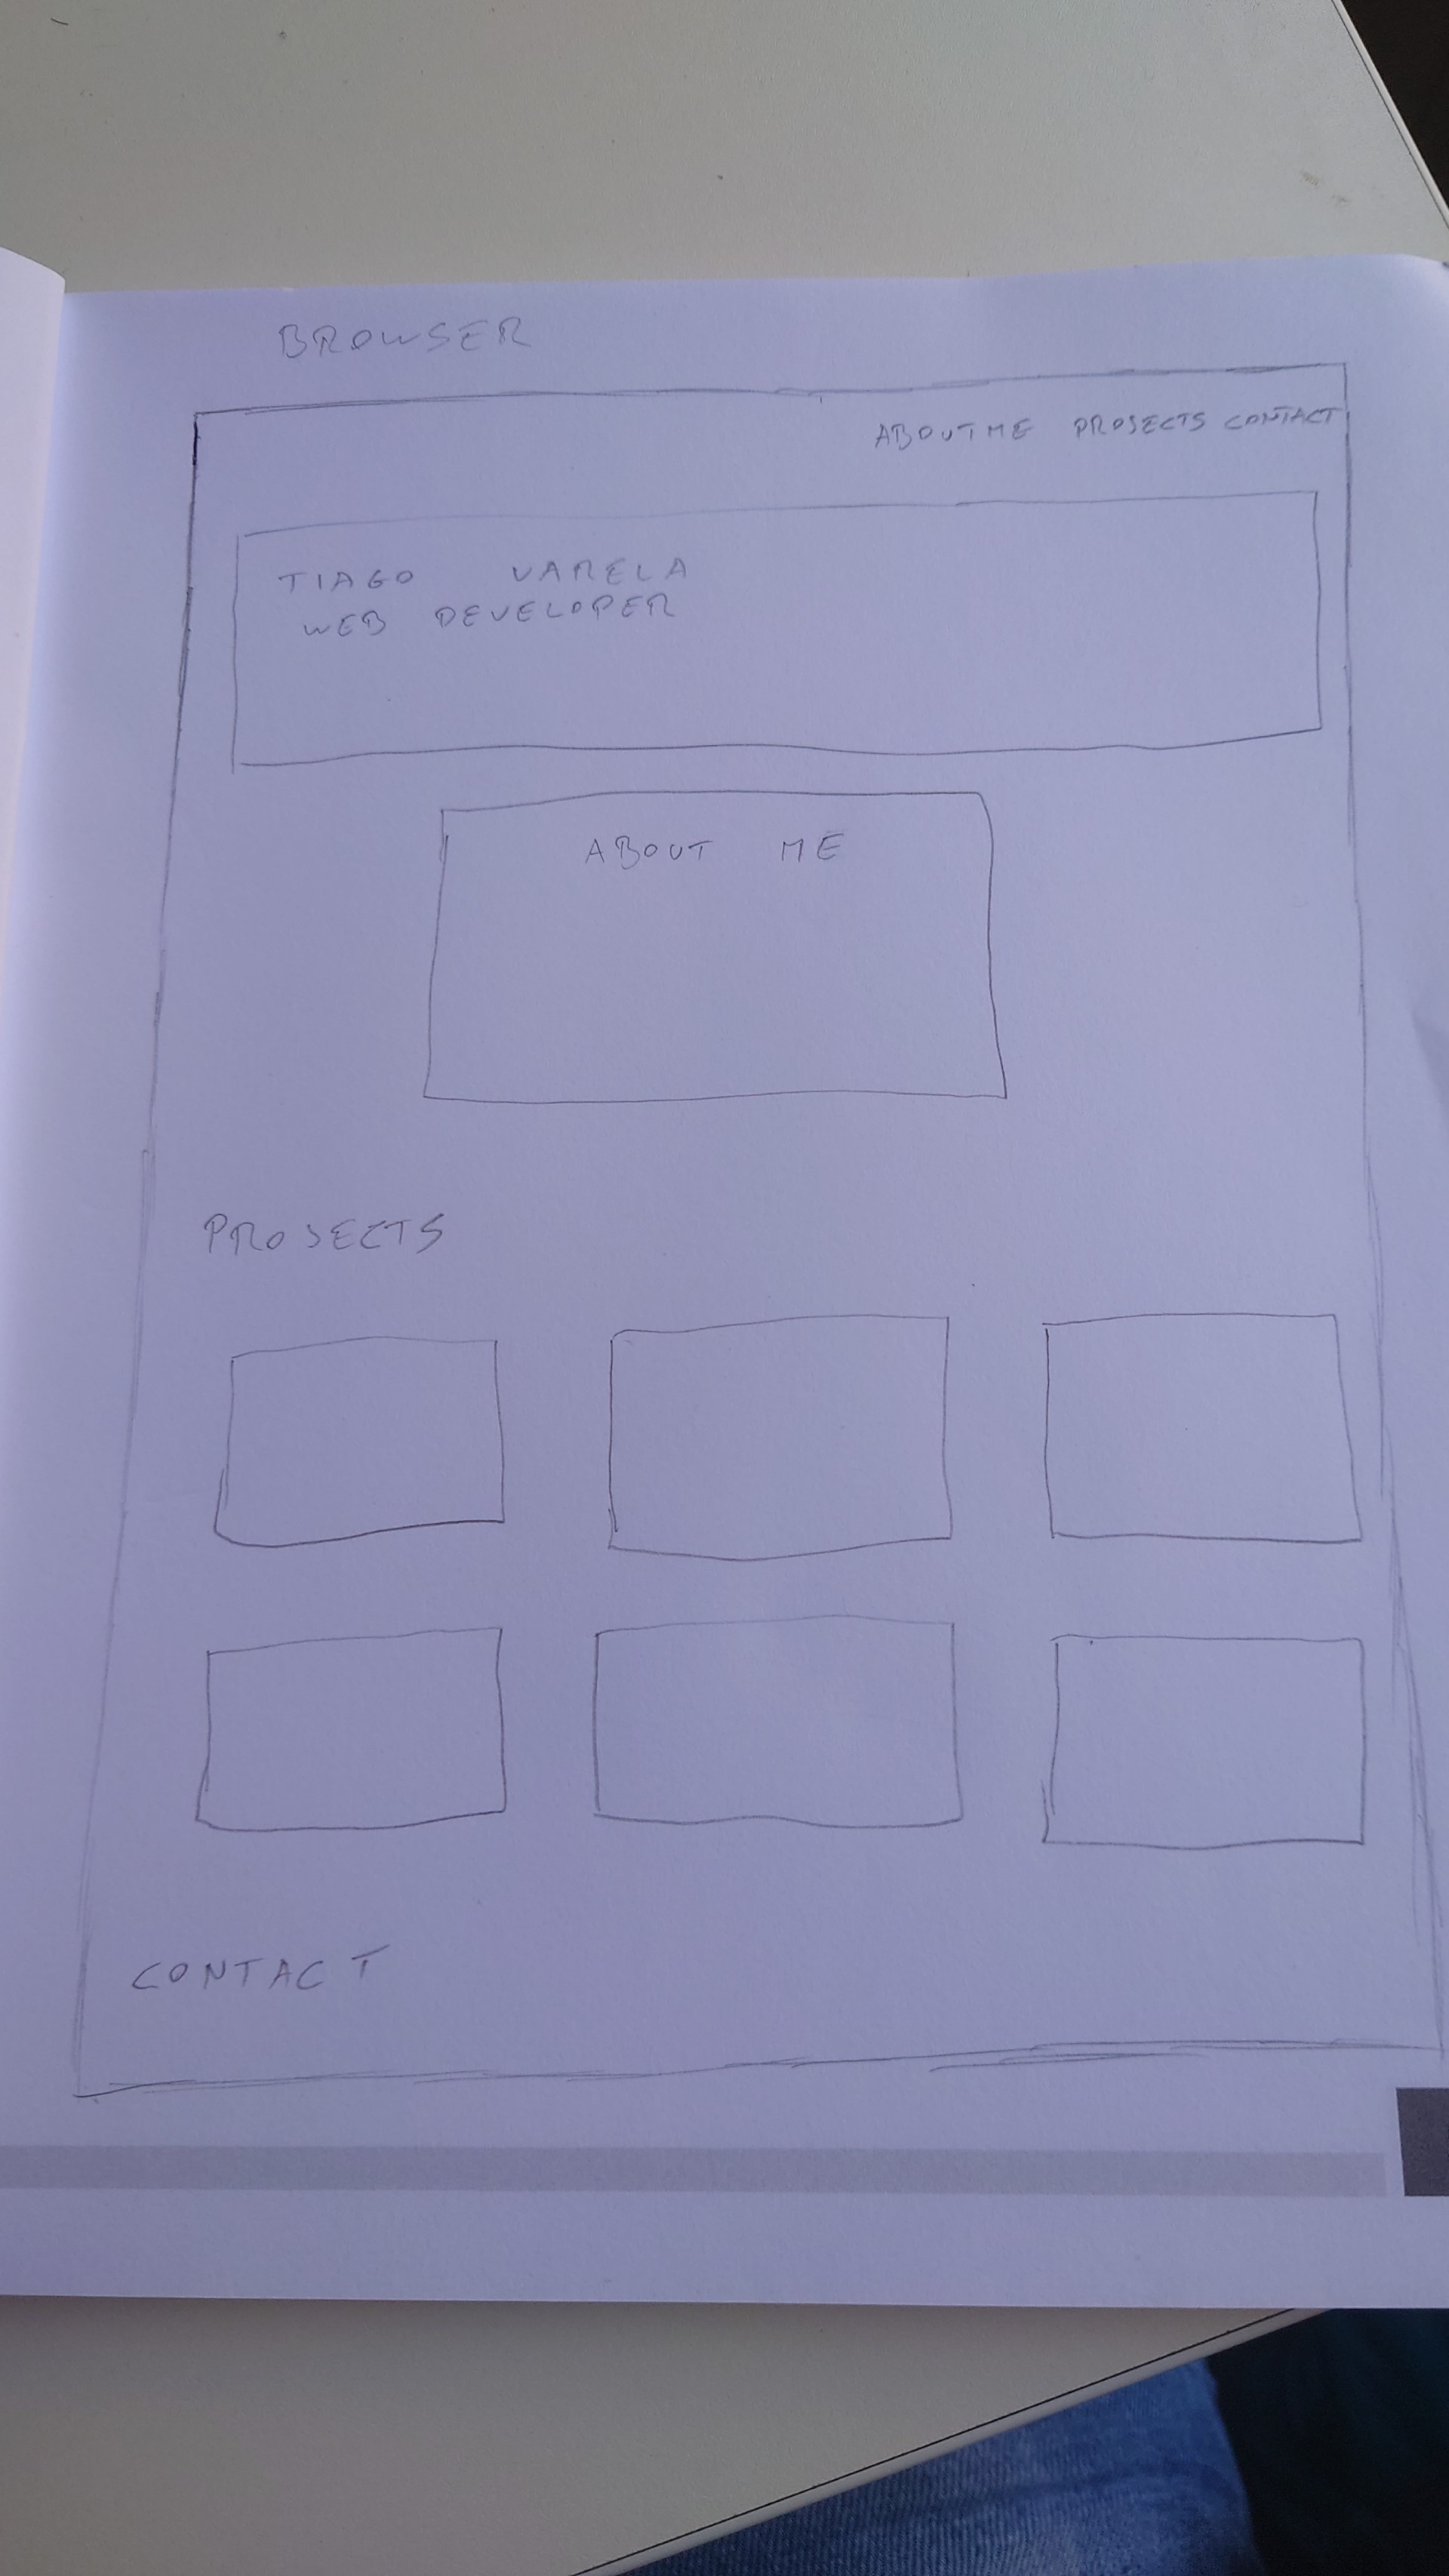 BROWSER
ABOUT ME PROJECTS CONTACT
TIAGO VARELA
WEB DEVELOPER
ABOUT ME
PROJECTS
CONTACT